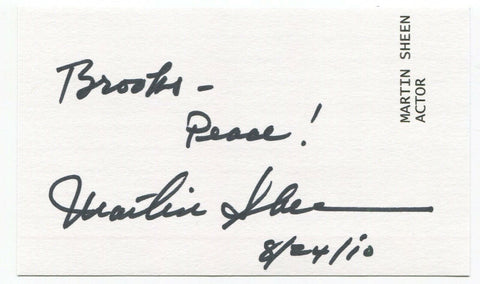 Brooks -
Peace!
Martin Sheen
8/24/10
MARTIN SHEEN
ACTOR